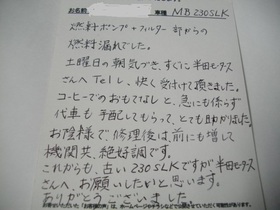 お名前 車種 MB230SLK
燃料ポンプ+フィルター部からの
燃料漏れでした。
土曜日の朝気づき、すぐに半田モータース
さんへTELし、快く受付けて頂きました。
コーヒーでのおもてなしと、急にも係らず
代車も手配してもらって、とても助かりました。
お陰様で修理後は、前にも増して
機関共、絶好調です。
これからも、古い230SLKですが半田モータース
さんへ、お願いしたいと思います。
ありがとうございました